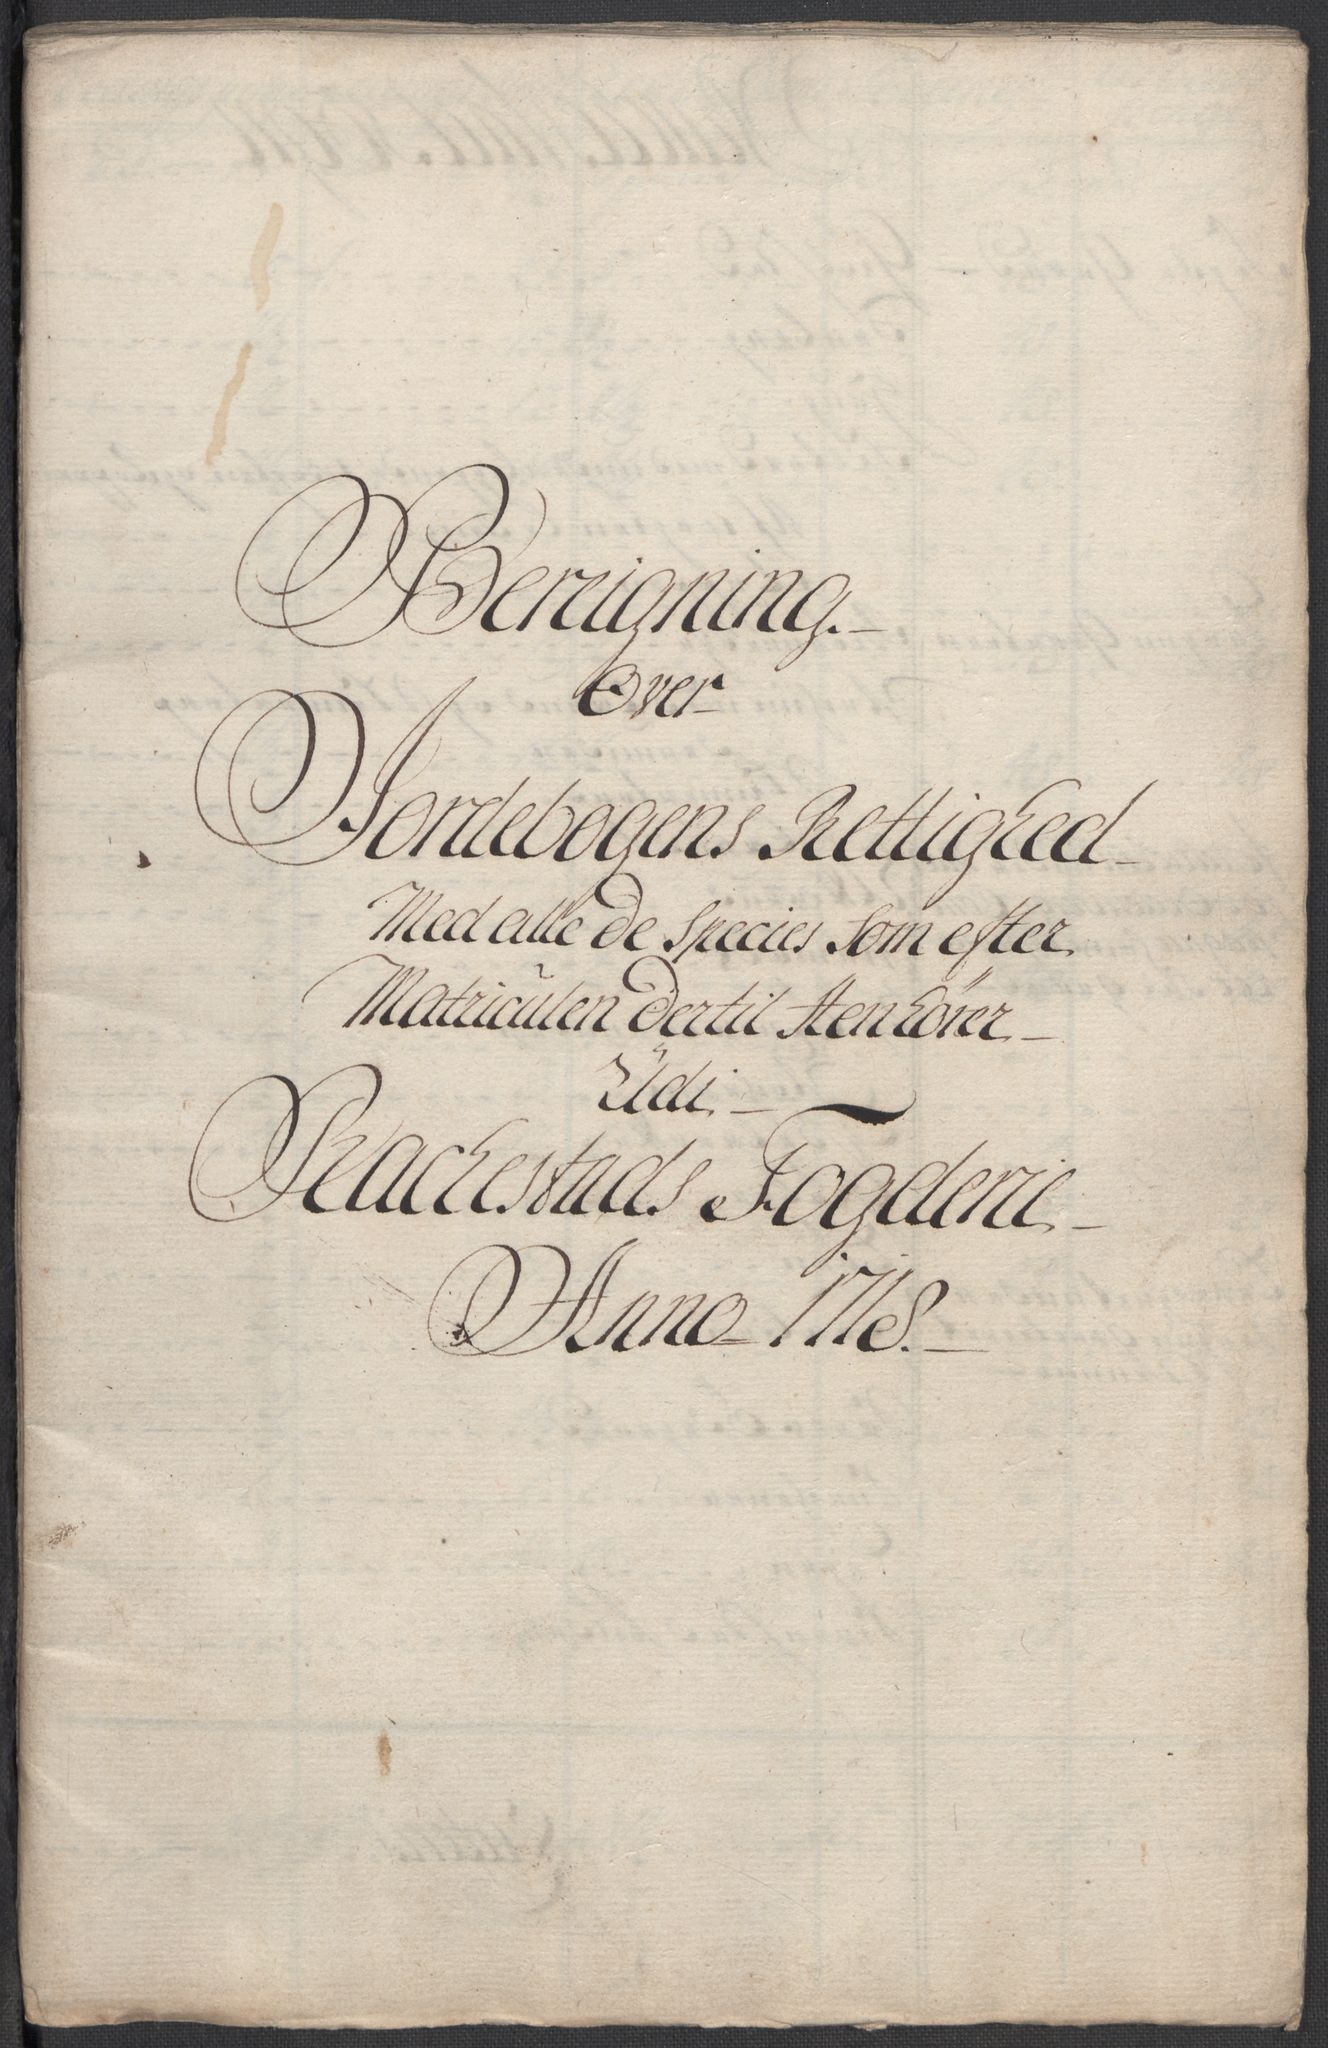 Bereigning.
Over
Jordebogens Rettighed
Med alle de Species Som efter
Matriculen dertil Henhörer
Udi
Rachestads Fogderie
Anno 1718.